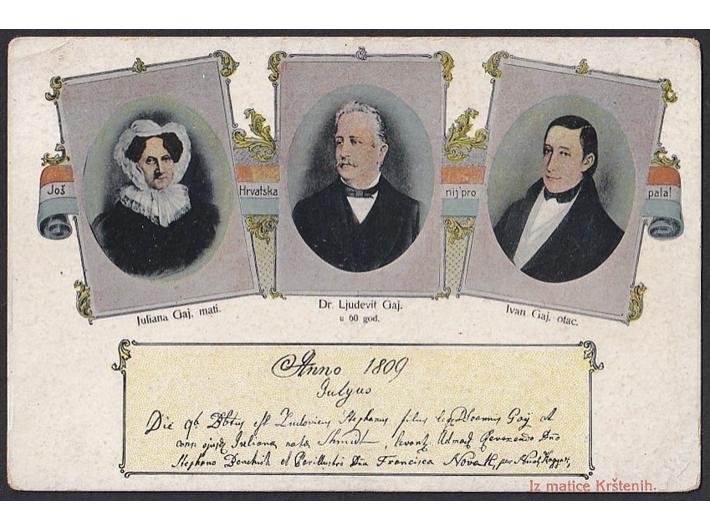 Još Hrvatska nij' pro pala!
Juliana Gaj, mati.
Dr. Ljudevit Gaj.
u 60 god.
Ivan Gaj, otac.
Anno 1809
Julyus
Die 9b est Ludovicus Stephanus filius Joannis Gaÿ et
Juliana nata Shmidt,
Stephano et Perillustri Dna Francisca Novak, per
Iz matice Krštenih.